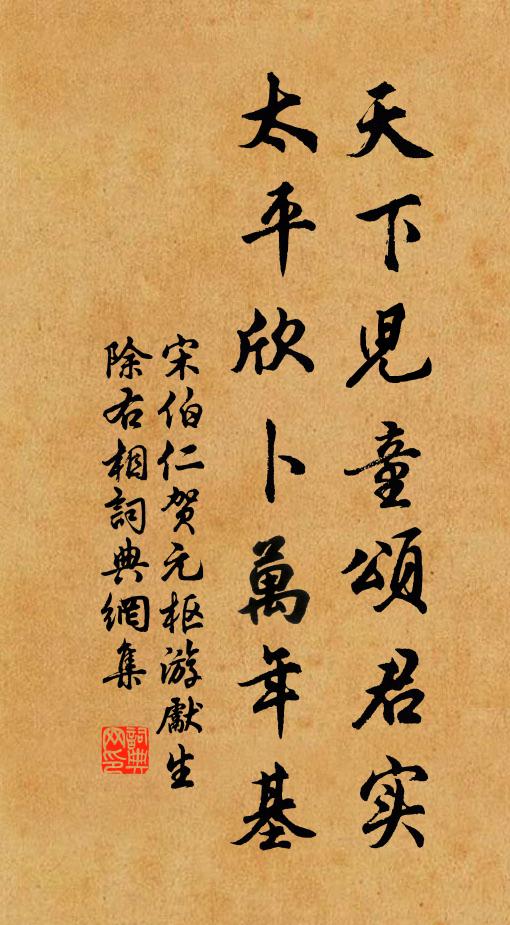 天下児童頌君实
太平欣卜萬年基
宋伯仁贺元枢游獻生
除右相詞典網集
詞典
网印